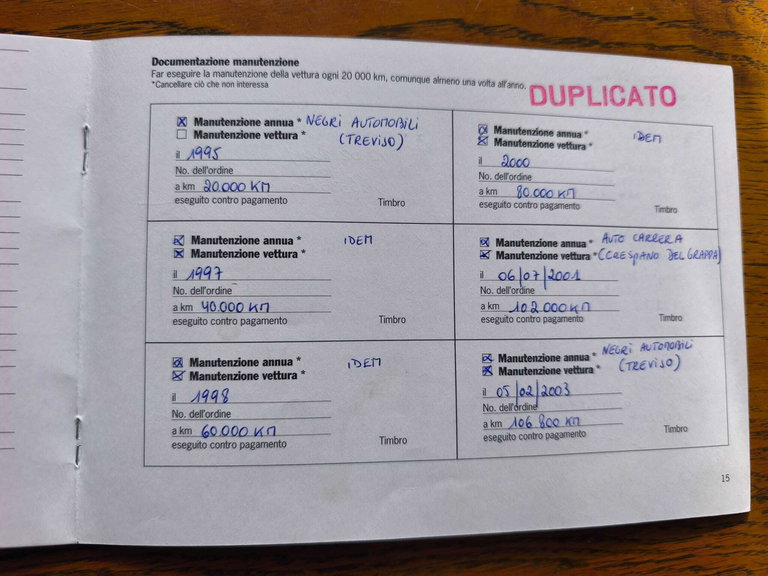 Documentazione manutenzione
Far eseguire la manutenzione della vettura ogni 20 000 km, comunque almeno una volta all'anno.
*Cancellare ciò che non interessa
DUPLICATO
Manutenzione annua * NEGRI AUTOMOBILI
Manutenzione vettura * (TREVISO)
il 1995
No. dell'ordine
a km 20.000 KM
eseguito contro pagamento Timbro
Manutenzione annua * IDEM
Manutenzione vettura *
il 1997
No. dell'ordine
a km 40.000 KM
eseguito contro pagamento Timbro
Manutenzione annua * IDEM
Manutenzione vettura *
il 1998
No. dell'ordine
a km 60.000 KM
eseguito contro pagamento Timbro
Manutenzione annua * IDEM
Manutenzione vettura *
il 2000
No. dell'ordine
a km 80.000 KM
eseguito contro pagamento Timbro
Manutenzione annua * AUTO CARRERA
Manutenzione vettura * (CRESPANO DEL GRAPPA)
il 06/07/2001
No. dell'ordine
a km 102.000 KM
eseguito contro pagamento Timbro
Manutenzione annua * NEGRI AUTOMOBILI
Manutenzione vettura * (TREVISO)
il 05/02/2003
No. dell'ordine
a km 106.800 KM
eseguito contro pagamento Timbro
15